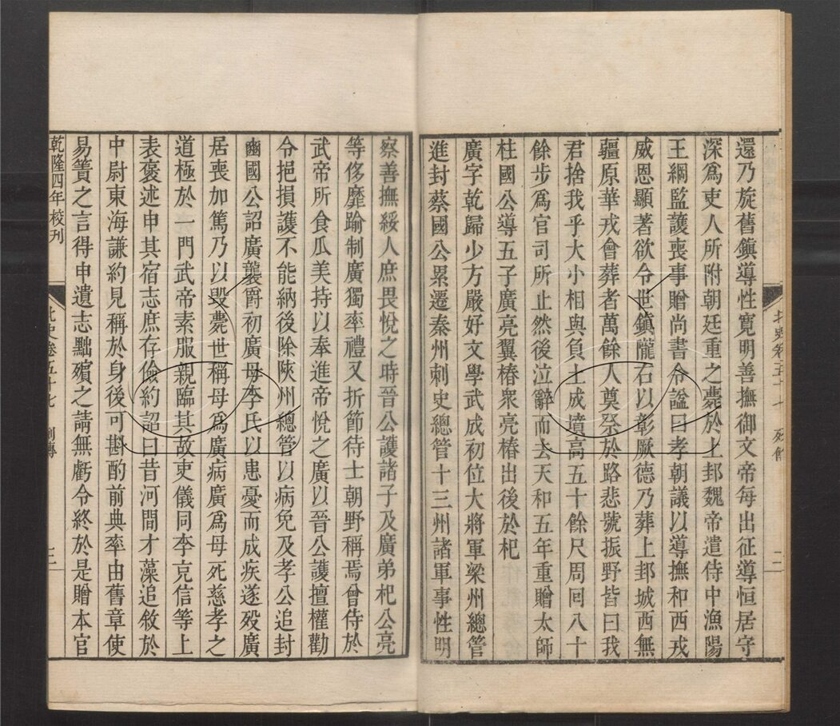 還乃旋舊鎮導性寬明善撫御文帝每出征導恒居守
深爲吏人所附朝廷重之薨於上邽魏帝遣侍中漁陽
王綱監護喪事贈尚書令諡曰孝朝議以導撫和西戎
威恩顯著欲令世鎮隴右以彰厥德乃葬上邽城西無
疆原華戎會葬者萬餘人奠祭於路悲號振野皆曰我
君捨我乎大小相與負土成墳高五十餘尺周回八十
餘步爲官司所止然後泣辭而去天和五年重贈太師
柱國公導五子廣亮翼椿衆亮椿出後於杞
廣字乾歸少方嚴好文學武成初位大將軍梁州總管
進封蔡國公累遷秦州刺史總管十三州諸軍事性明
察善撫綏人庶畏悅之時晉公護諸子及廣弟杞公亮
等侈靡踰制廣獨率禮又折節待士朝野稱焉曾侍於
武帝所食瓜美持以奉進帝悅之廣以晉公護擅權勸
令挹損護不能納後除陝州總管以病免及孝公追封
豳國公詔廣襲爵初廣母李氏以患憂而成疾遂歿廣
居喪加篤乃以毀薨世稱母爲廣病廣爲母死慈孝之
道極於一門武帝素服親臨其故吏儀同李克信等上
表褒述申其宿志庶存儉約詔曰昔河間才藻追敘於
中尉東海謙約見稱於身後可斟酌前典率由舊章使
易簀之言得申遺志黜殯之請無虧令終於是贈本官
乾隆四年校刊
北史卷五十七 列傳